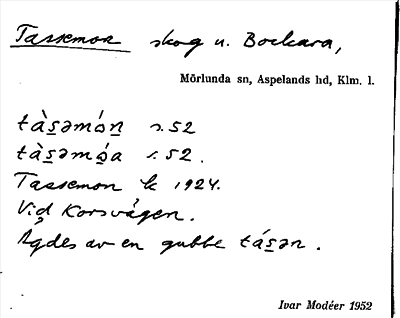 Tassemon skog u. Bockara,
Mörlunda sn, Aspelands hd, Klm. l.
tàs̲əmón̲ s. 52
tàs̲əmó̲a s. 52.
Tassemon k 1924.
Vid Korsvägen.
Ägdes av en gubbe tás̲ən.
Ivar Modéer 1952